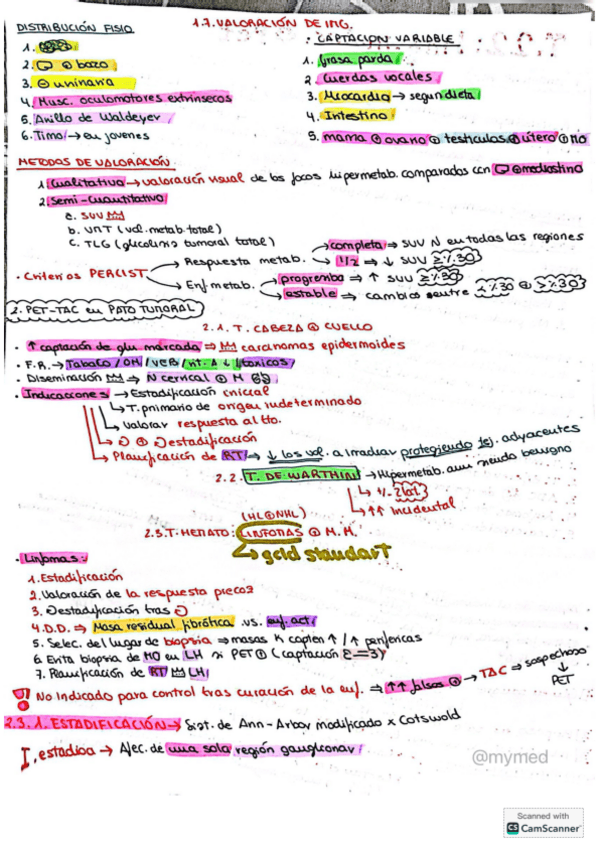 1.7. VALORACIÓN DE IMG.
DISTRIBUCIÓN FISIO
1.
2. ⊕ bazo
3. ⊖ urinaria
4. Musc. oculomotores extrinsecos
5. Anillo de Waldeyer
6. Timo → en jovenes
: CAPTACION VARIABLE
1. Grasa parda
2. Cuerdas vocales
3. Miocardio → segun dieta
4. Intestino
5. mama ⊕ ovario ⊕ testiculos ⊕ útero ⊕ MO
METODOS DE VALORACIÓN
1. Cualitativo → valoración visual de los focos hipermetab. comparados con ⊕ mediastino
2. Semi-cuantitativo
a. SUV
b. VMT (vol. metab. total)
c. TLG (glicolisis tumoral total)
· Criterios PERCIST
→ Respuesta metab.
→ completa ⇒ SUV N en todas las regiones
→ 1/2 ⇒ ↓ SUV ≥ %30
→ Enf metab.
→ progresiba ⇒ ↑ SUV ≥ %30
→ estable ⇒ cambios entre
2. PET-TAC en PATO TUMORAL
2.1. T. CABEZA ⊕ CUELLO
· ↑ captación de glu marcada ⇒ carcinomas epidermoides
· F.R. → Tabaco / OH / VEB / vit. A ↓ / toxicos
· Diseminación ⇒ N cervical ⊕ M
· Indicaciones → Estadificación inicial
↳ T. primario de origen indeterminado
↳ Valorar respuesta al tto.
↳ Estadificación
↳ Planificación de RT ⇒ ↓ los vol. a irradiar protegiendo tej. adyacentes
2.2. T. DE WARTHIN → Hipermetab. aun siendo benigno
↳ +/- 2 lat
↳ ↑↑ incidental
(HL ⊕ NHL)
2.3. T. HEMATO: LINFOMAS ⊕ M.M.
↳ gold standart
· Linfomas:
1. Estadificación
2. Valoración de la respuesta precoz
3. Destadificación tras
4. D.D. ⇒ Masa residual fibrótica vs. enf. act.
5. Selec. del lugar de biopsia ⇒ masas K capten ↑ / ↑ perifericas
6. Evita biopsia de MO en LH si PET ⊕ (captación = 3)
7. Planificación de RT LH
No indicado para control tras curación de la enf. ⇒ ↑↑ falsos ⊕ → TAC ⇒ sospechoso
↓
PET
2.3.1. ESTADIFICACIÓN → Sist. de Ann-Arbor modificado x Cotswold
I. estadioa → Afec. de una sola región ganglionar
@mymed
Scanned with
CS CamScanner